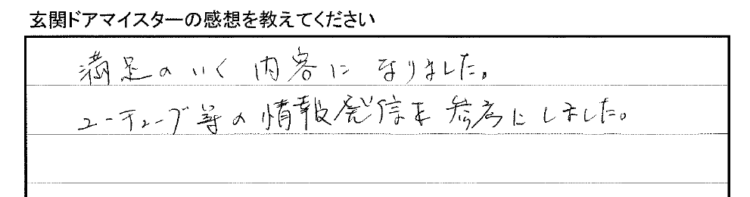 玄関ドアマイスターの感想を教えてください
満足のいく内容になりました。
ユーチューブ等の情報発信を参考にしました。